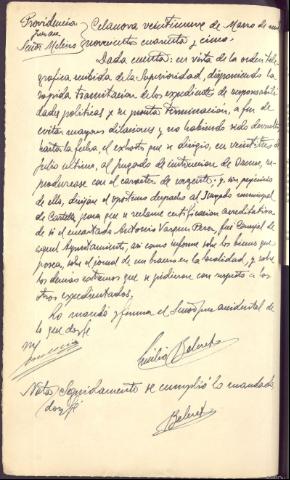 Providencia Celanova veintinueve de Marzo de mil
Juez
Señor Melero novecientos cuarenta y cinco.
Dada cuenta: en vista de la orden tele-
grafica recibida de la Superioridad, disponiendo la
rapida tramitacion de los expedientes de responsabili-
dades politicas y su pronta terminacion, a fin de
evitar mayores dilaciones y no habiendo sido devuelto
hasta la fecha, el exhorto que se dirigio, en veintitres de
Julio ultimo, al juzgado de instruccion de
reproduzcase con el caracter de urgente; y, sin perjuicio
de ello, dirijase el oportuno despacho al Juzgado municipal
de Cartelle, para que se reclame certificacion acreditativa
de si el encartado Antonio Vazquez Pérez, fué Concejal de
aquel Ayuntamiento, asi como informe sobre los bienes que
posea, sobre el jornal de un bracero en la localidad, y sobre
los demás extremos que se pidieron con respecto a los
otros expedientados.
Lo mandó y firma el Señor Juez accidental de
lo que doy fé
Nota) Seguidamente se cumplió lo mandado
doy fé